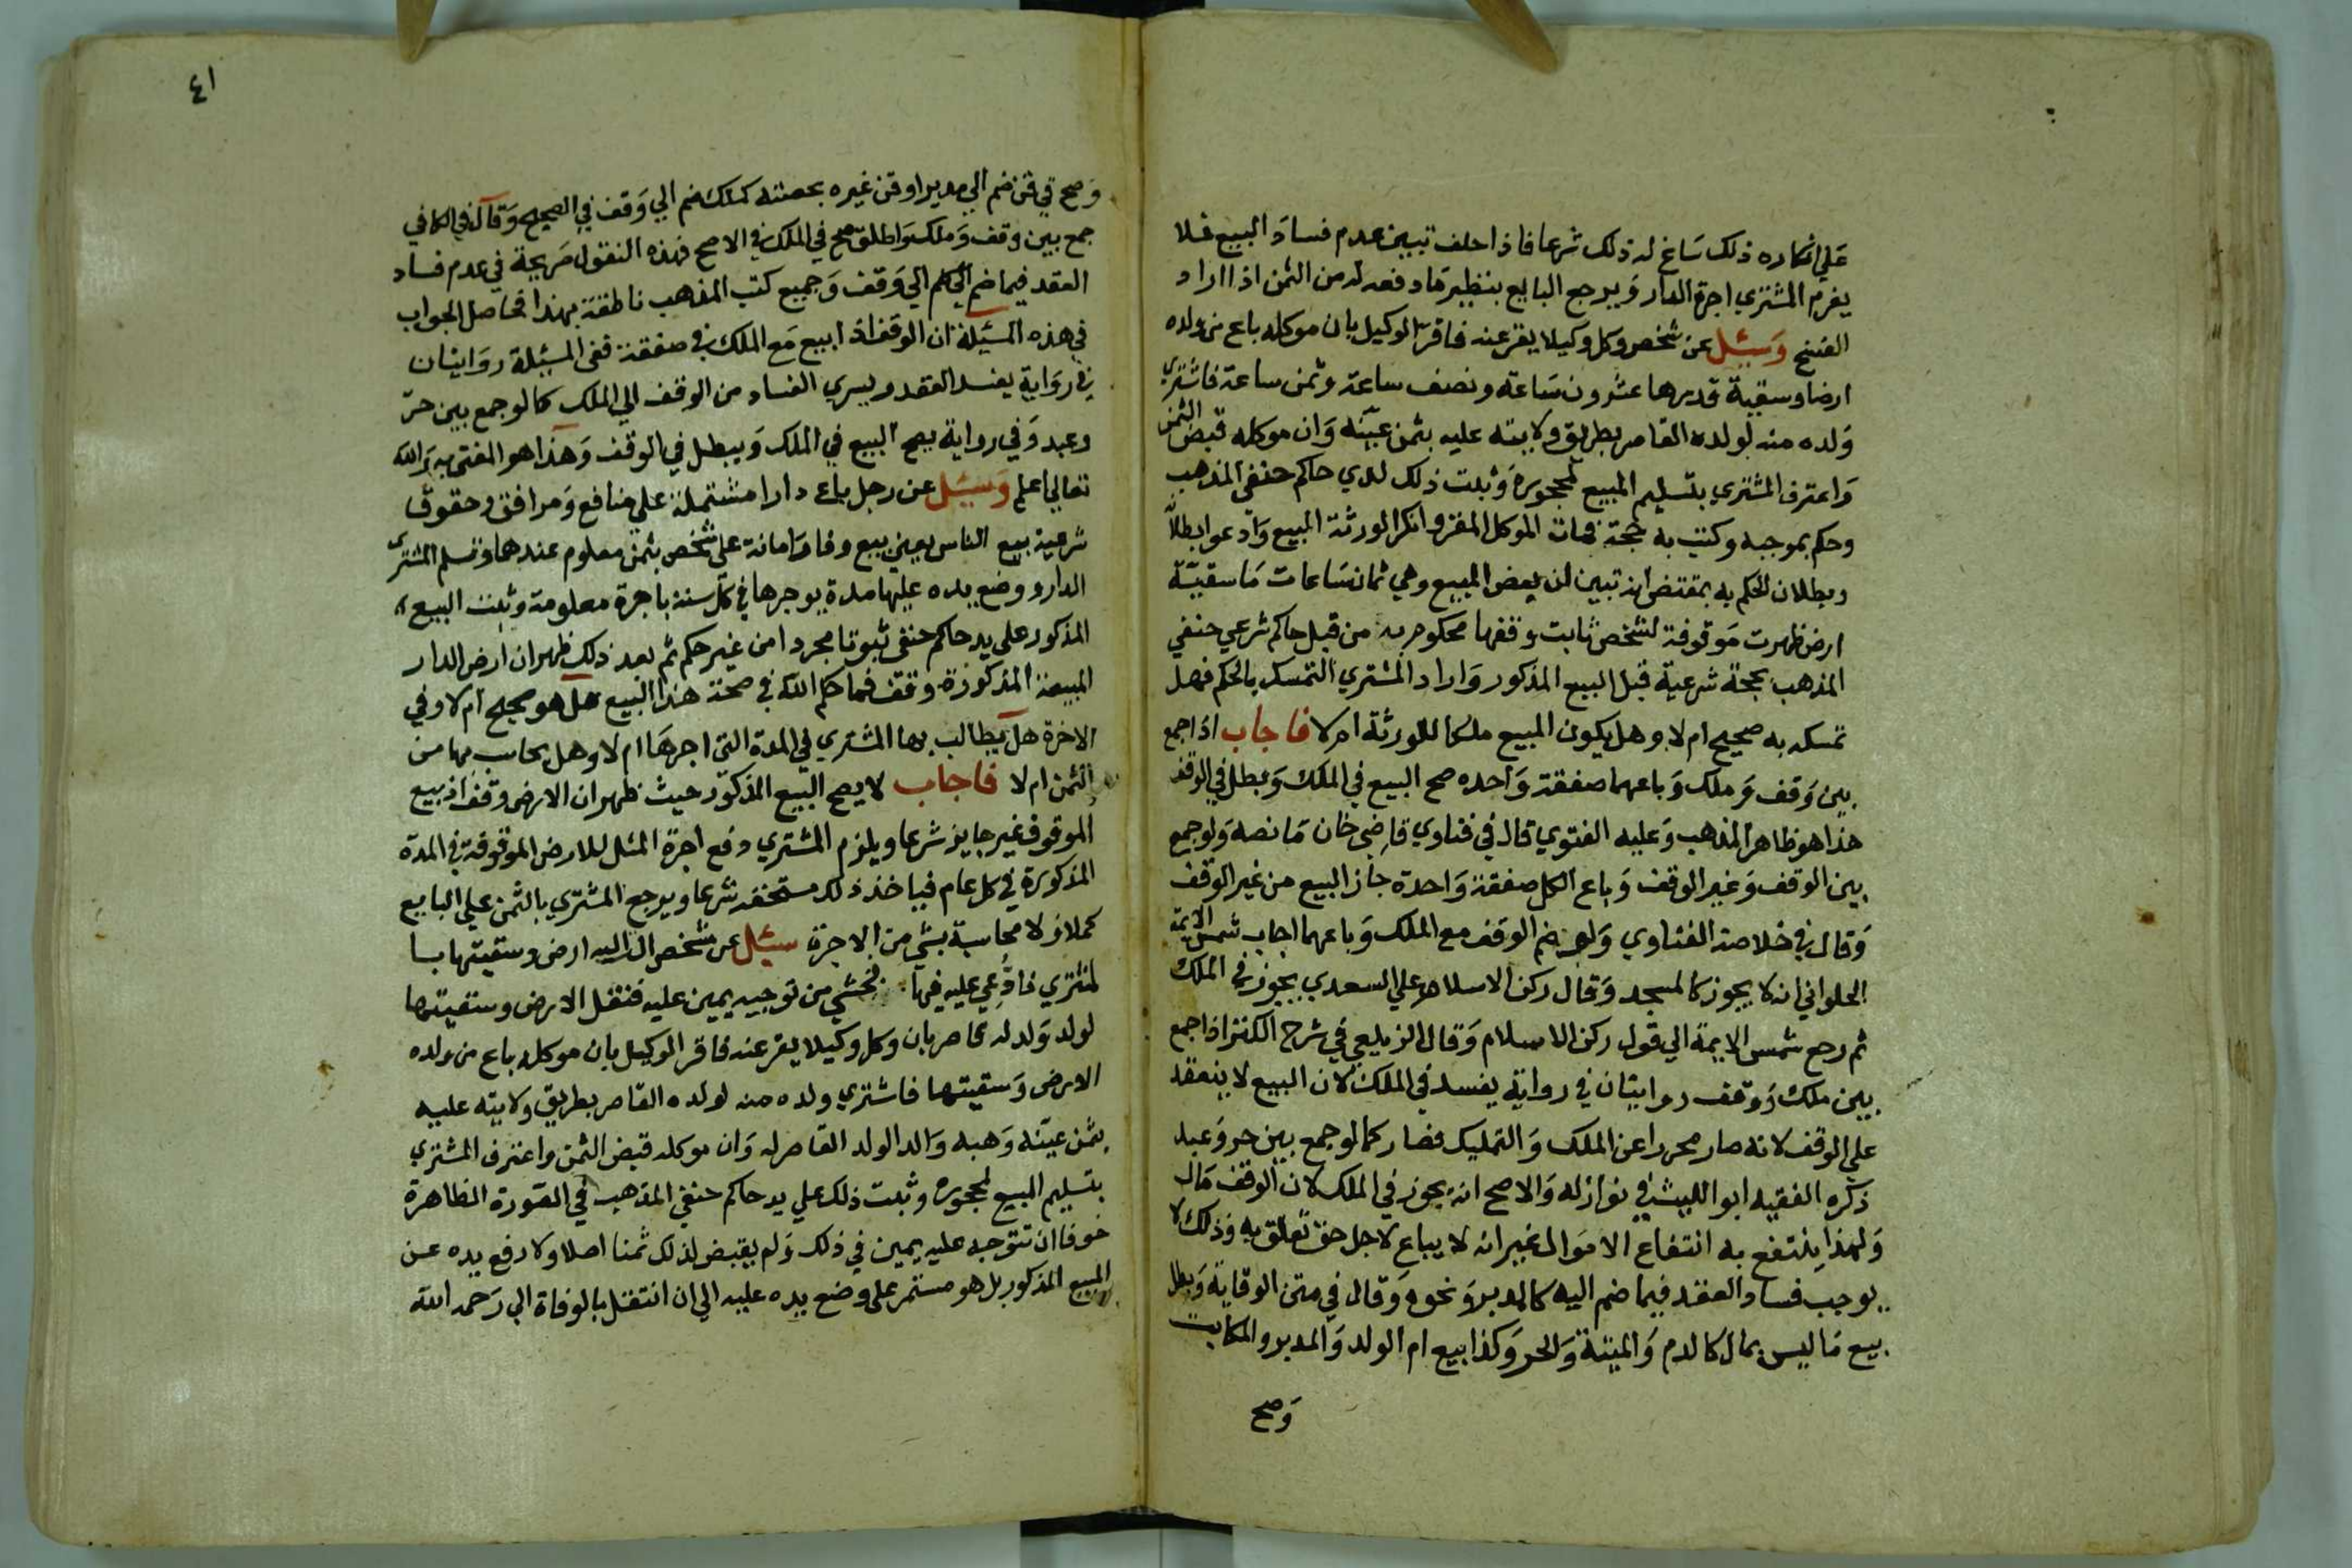 علي انكاره ذلك ساغ له ذلك شرعا فاذا حلف تبيين عدم فساد البيع فلا
يغرم المشتري اجرة الدار ويرجع البايع بنظير ما دفعه له من الثمن اذا اراد
الفسخ وسئل عن شخص وكل وكيلا يقر عنه فاقر الوكيل بان موكله باع من ولده
ارضا وسقية قديرها عشرون ساعة ونصف ساعة وثمن ساعة فاشتري
ولده منه لولده القاصر بطريق ولايته عليه بثمن عينه وان موكله قبض الثمن
واعترف المشتري بتسليم المبيع لمحجوره وثبت ذلك لدي حاكم حنفي المذهب
وحكم بموجبه وكتب به حجة فمات الموكل المقر وانكر الورثة المبيع وادعوا بطلا
وبطلان الحكم به بمقتضي انه تبين ان بعض المبيع وهي ثمان ساعات ما سقية
ارض ظهرت موقوفة لشخص ثابت وقفها محكوم به من قبل حاكم شرعي حنفي
المذهب بحجة شرعية قبل البيع المذكور واراد المشتري التمسك بالحكم فهل
تمسكه به صحيح ام لا وهل يكون المبيع ملكا للورثة ام لا فاجاب اذا جمع
بين وقف وملك وباعهما صفقة واحده صح البيع في الملك وبطل في الوقف
هذا هو ظاهر المذهب وعليه الفتوي قال في فتاوي قاضي خان ما نصه ولو جمع
بين الوقف وغير الوقف وباع الكل صفقة واحدة جاز البيع من غير الوقف
وقال في خلاصة الفتاوي ولو ضم الوقف مع الملك وباعهما اجاب شمس الايمة
الحلواني انه لا يجوز كالمسجد وقال ركن الاسلام علي السعدي يجوز في الملك
ثم رجع شمس الايمة الي قول ركن الاسلام وقال الزيلعي في شرح الكنز اذا جمع
بين ملك ووقف روايتان في رواية يفسد في الملك لان البيع لا ينعقد
علي الوقف لانه صار محررا عن الملك والتمليك فصار كما لو جمع بين حر وعبد
ذكره الفقيه ابو الليث في نوازله والاصح انه يجوز في الملك لان الوقف مال
ولهذا ينتفع به انتفاع الاموال غير انه لا يباع لاجل حق تعلق به وذلك لا
يوجب فساد العقد فيما ضم اليه كالمدبر ونحوه وقال في متن الوقاية وبطل
بيع ما ليس بمال كالدم والميتة والحر وكذا بيع ام الولد والمدبر والمكاتب
وصح
٤١
وصح في قن ضم الي مدبر او قن غيره بحصته كملك ضم الي وقف في الصحيح وقال في الكافي
جمع بين وقف وملك واطلق صح في الملك في الاصح فهذه النقول صريحة في عدم فساد
العقد فيما ضم الي الوقف وجميع كتب المذهب ناطقة بهذا فحاصل الجواب
في هذه المسئلة ان الوقف اذ ابيع مع الملك في صفقة ففي المسئلة روايتان
في رواية يفسد العقد ويسري الفساد من الوقف الي الملك كما لو جمع بين حر
وعبد وفي رواية يصح البيع في الملك ويبطل في الوقف وهذا هو المفتي به والله
تعالي اعلم وسئل عن رجل باع دارا مشتملة علي منافع ومرافق وحقوق
شرعية بيع الناس يعني بيع وفا وامانة علي شخص بثمن معلوم عندهما وتسلم المشتري
الدار ووضع يده عليها مدة يوجرها في كل سنة باجرة معلومة وثبت البيع
المذكور علي يد حاكم حنفي ثبوتا مجردا من غير حكم ثم بعد ذلك ظهر ان ارض الدار
المبيعة المذكورة وقف فما حكم الله في صحة هذا البيع هل هو صحيح ام لا وفي
الاجرة هل يطالب بها المشتري في المدة التي اجرها ام لا وهل يحاسب بها من
الثمن ام لا فاجاب لا يصح البيع المذكور حيث ظهر ان الارض وقف اذ بيع
الموقوف غير جايز شرعا ويلزم المشتري دفع اجرة المثل للارض الموقوفة في المدة
المذكورة في كل عام فياخذ ذلك مستحقه شرعا ويرجع المشتري بالثمن علي البايع
كملا ولا محاسبة بشي من الاجرة سئل عن شخص ال اليه ارض وسقيتها با
لمشتري فادعي عليه فيها فخشي من توجيه يمين عليه فنقل الارض وسقيتها
لولد ولد له قاصر بان وكل وكيلا يقر عنه فاقر الوكيل بان موكله باع من ولده
الارض وسقيتها فاشتري ولده منه لولده القاصر بطريق ولايته عليه
بثمن عينه وهبه والد الولد القاصر له وان موكله قبض الثمن واعترف المشتري
بتسليم المبيع لمحجوره وثبت ذلك علي يد حاكم حنفي المذهب في الصورة الظاهرة
خوفا ان تتوجه عليه يمين في ذلك ولم يقبض لذلك ثمنا اصلا ولا رفع يده عن
المبيع المذكور بل هو مستمر علي وضع يده عليه الي ان انتقل بالوفاة الي رحمة الله